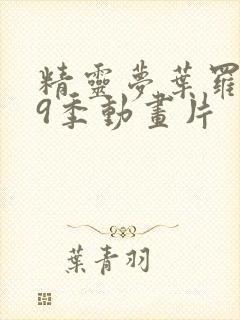 精靈夢葉羅
9季動畫片
葉青羽